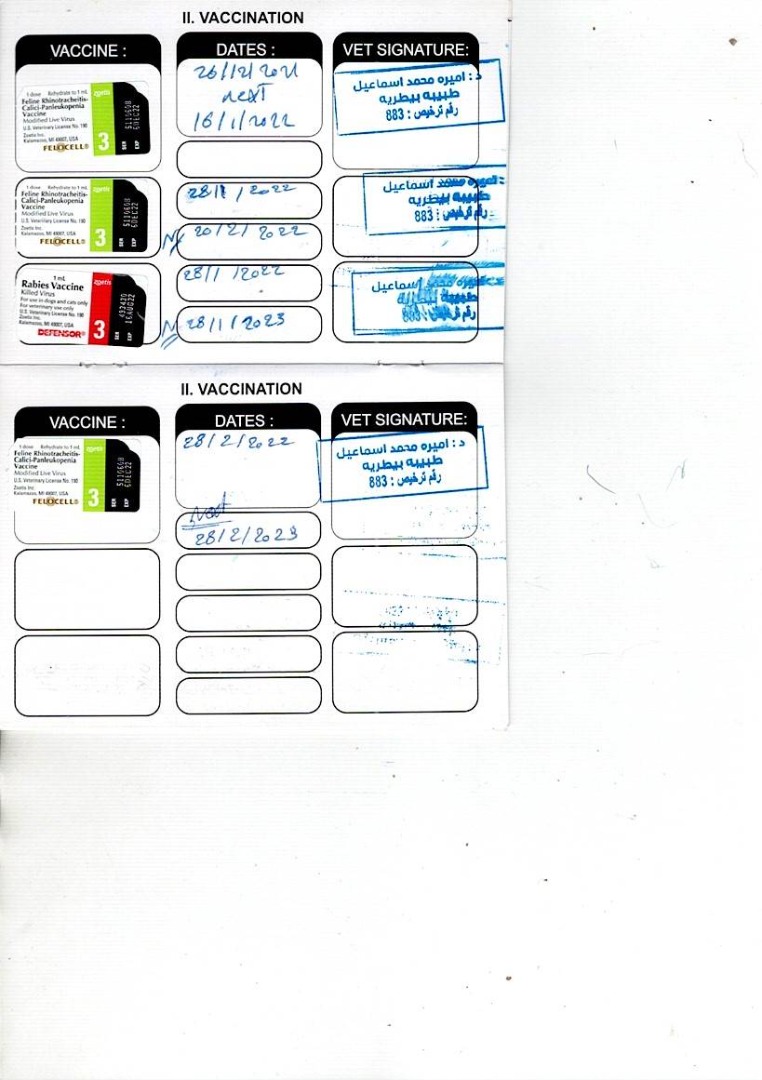 II. VACCINATION
VACCINE :
DATES :
VET SIGNATURE:
1 dose Rehydrate to 1 mL
Feline Rhinotracheitis-
Calici-Panleukopenia
Vaccine
Modified Live Virus
U.S. Veterinary License No. 190
Zoetis Inc.
Kalamazoo, MI 49007, USA
FELOCELL®
zoetis
3
SER
EXP
6DEC22
26/12/2021
next
16/1/2022
د : اميره محمد اسماعيل
طبيبه بيطريه
رقم ترخيص : 883
1 dose Rehydrate to 1 mL
Feline Rhinotracheitis-
Calici-Panleukopenia
Vaccine
Modified Live Virus
U.S. Veterinary License No. 190
Zoetis Inc.
Kalamazoo, MI 49007, USA
FELOCELL®
zoetis
3
SER
EXP
6DEC22
28/1/2022
N
20/2/2022
اميره محمد اسماعيل
طبيبه بيطريه
رقم ترخيص : 883
1 mL
Rabies Vaccine
Killed Virus
For use in dogs and cats only
For veterinary use only
U.S. Veterinary License No. 190
Zoetis Inc.
Kalamazoo, MI 49007, USA
DEFENSOR®
zoetis
3
SER
EXP
16AUG22
28/1/2022
N
28/1/2023
اميره محمد اسماعيل
طبيبه بيطريه
رقم ترخيص : 883
II. VACCINATION
VACCINE :
DATES :
VET SIGNATURE:
1 dose Rehydrate to 1 mL
Feline Rhinotracheitis-
Calici-Panleukopenia
Vaccine
Modified Live Virus
U.S. Veterinary License No. 190
Zoetis Inc.
Kalamazoo, MI 49007, USA
FELOCELL®
zoetis
3
SER
EXP
6DEC22
28/2/2022
Next
28/2/2023
د : اميره محمد اسماعيل
طبيبه بيطريه
رقم ترخيص : 883